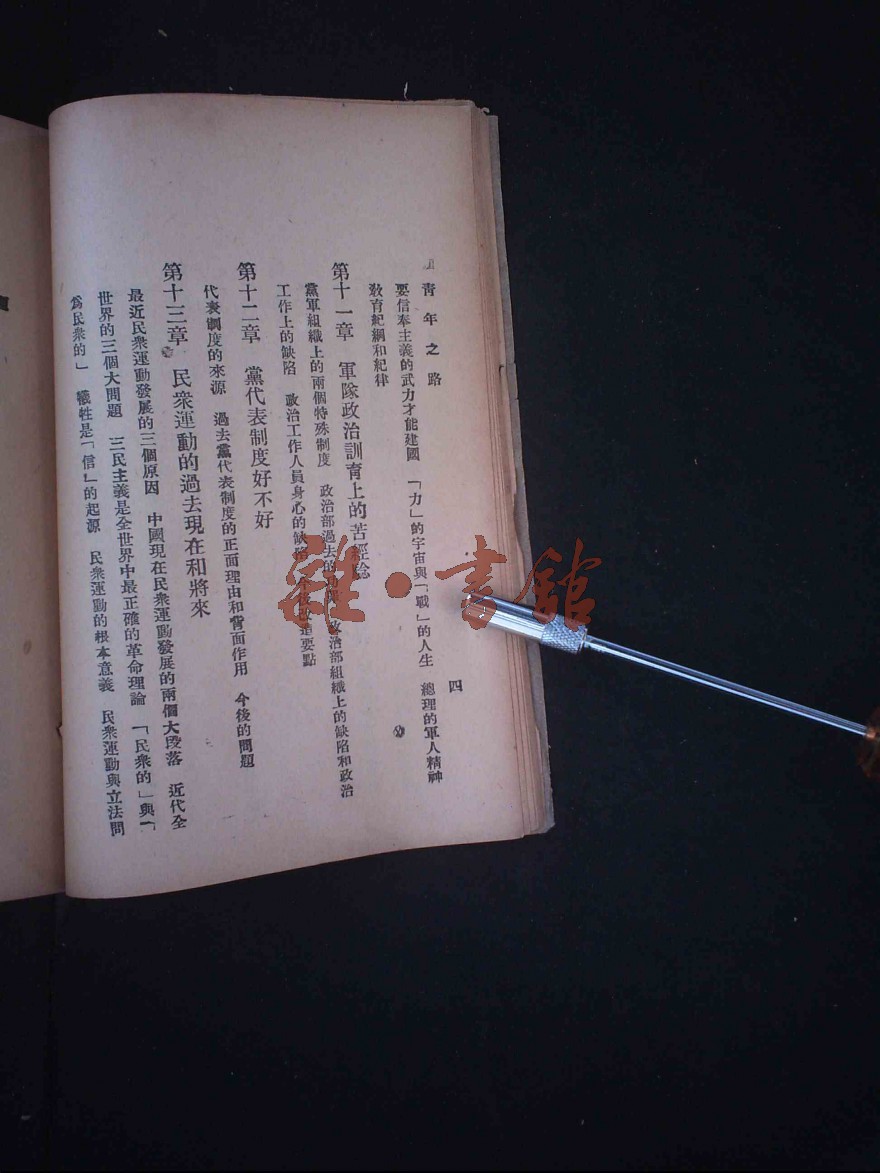 青年之路
四
要信奉主義的武力才能建國　「力」的宇宙與「戰」的人生　總理的軍人精神
教育紀綱和紀律
第十一章　軍隊政治訓育上的苦經驗
黨軍組織上的兩個特殊制度　政治部過去的　政治部組織上的缺陷和政治
工作上的缺陷　政治工作人員身心的缺陷　今後改進要點
第十二章　黨代表制度好不好
代表制度的來源　過去黨代表制度的正面理由和背面作用　今後的問題
第十三章　民衆運動的過去現在和將來
最近民衆運動發展的三個原因　中國現在民衆運動發展的兩個大段落　近代全
世界的三個大問題　三民主義是全世界中最正確的革命理論　「民衆的」與「
爲民衆的」　犧牲是「信」的起源　民衆運動的根本意義　民衆運動與立法問
雜·書館